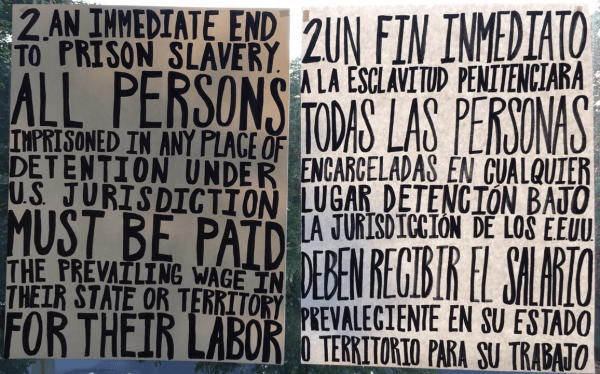 2. AN IMMEDIATE END
TO PRISON SLAVERY.
ALL PERSONS
IMPRISONED IN ANY PLACE OF
DETENTION UNDER
U.S. JURISDICTION
MUST BE PAID
THE PREVAILING WAGE IN
THEIR STATE OR TERRITORY
FOR THEIR LABOR
2. UN FIN INMEDIATO
A LA ESCLAVITUD PENITENCIARA
TODAS LAS PERSONAS
ENCARCELADAS EN CUALQUIER
LUGAR DETENCIÓN BAJO
LA JURISDICCIÓN DE LOS E.E.U.U.
DEBEN RECIBIR EL SALARIO
PREVALECIENTE EN SU ESTADO
O TERRITORIO PARA SU TRABAJO